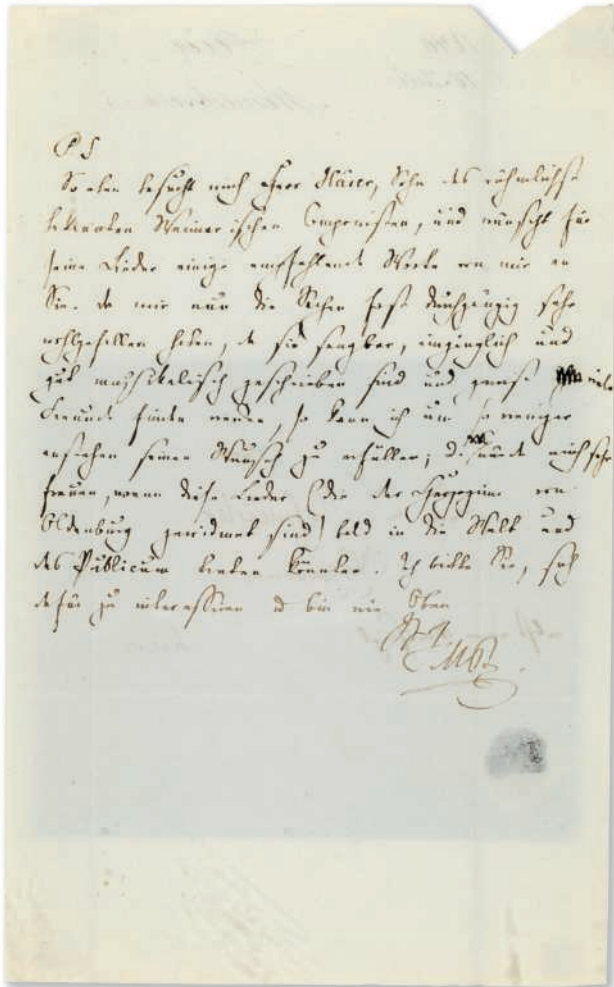 P.S.
So eben besucht mich Herr Häser, Sohn des rühmlichst
bekannten Weimarischen Componisten, und wünscht für
seine Lieder einige empfehlende Worte von mir an
Sie. Da mir nun die Sachen fast durchgängig sehr
wohlgefallen haben, da sie sangbar, eingänglich und
gut musikalisch geschrieben sind und gewiß viele
Freunde finden werden, so kann ich um so weniger
anstehen seinen Wunsch zu erfüllen; es würde mich sehr
freuen, wenn diese Lieder (die der Herzoginn von
Oldenburg gewidmet sind) bald in die Welt und
das Publicum treten könnten. Ich bitte Sie, sich
dafür zu interessiren u bin wie Oben